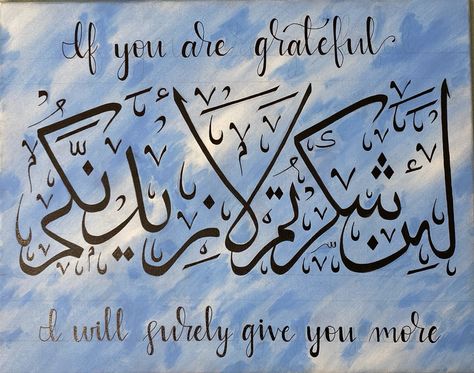 If you are grateful
لئن شكرتم لأزيدنكم
I will surely give you more